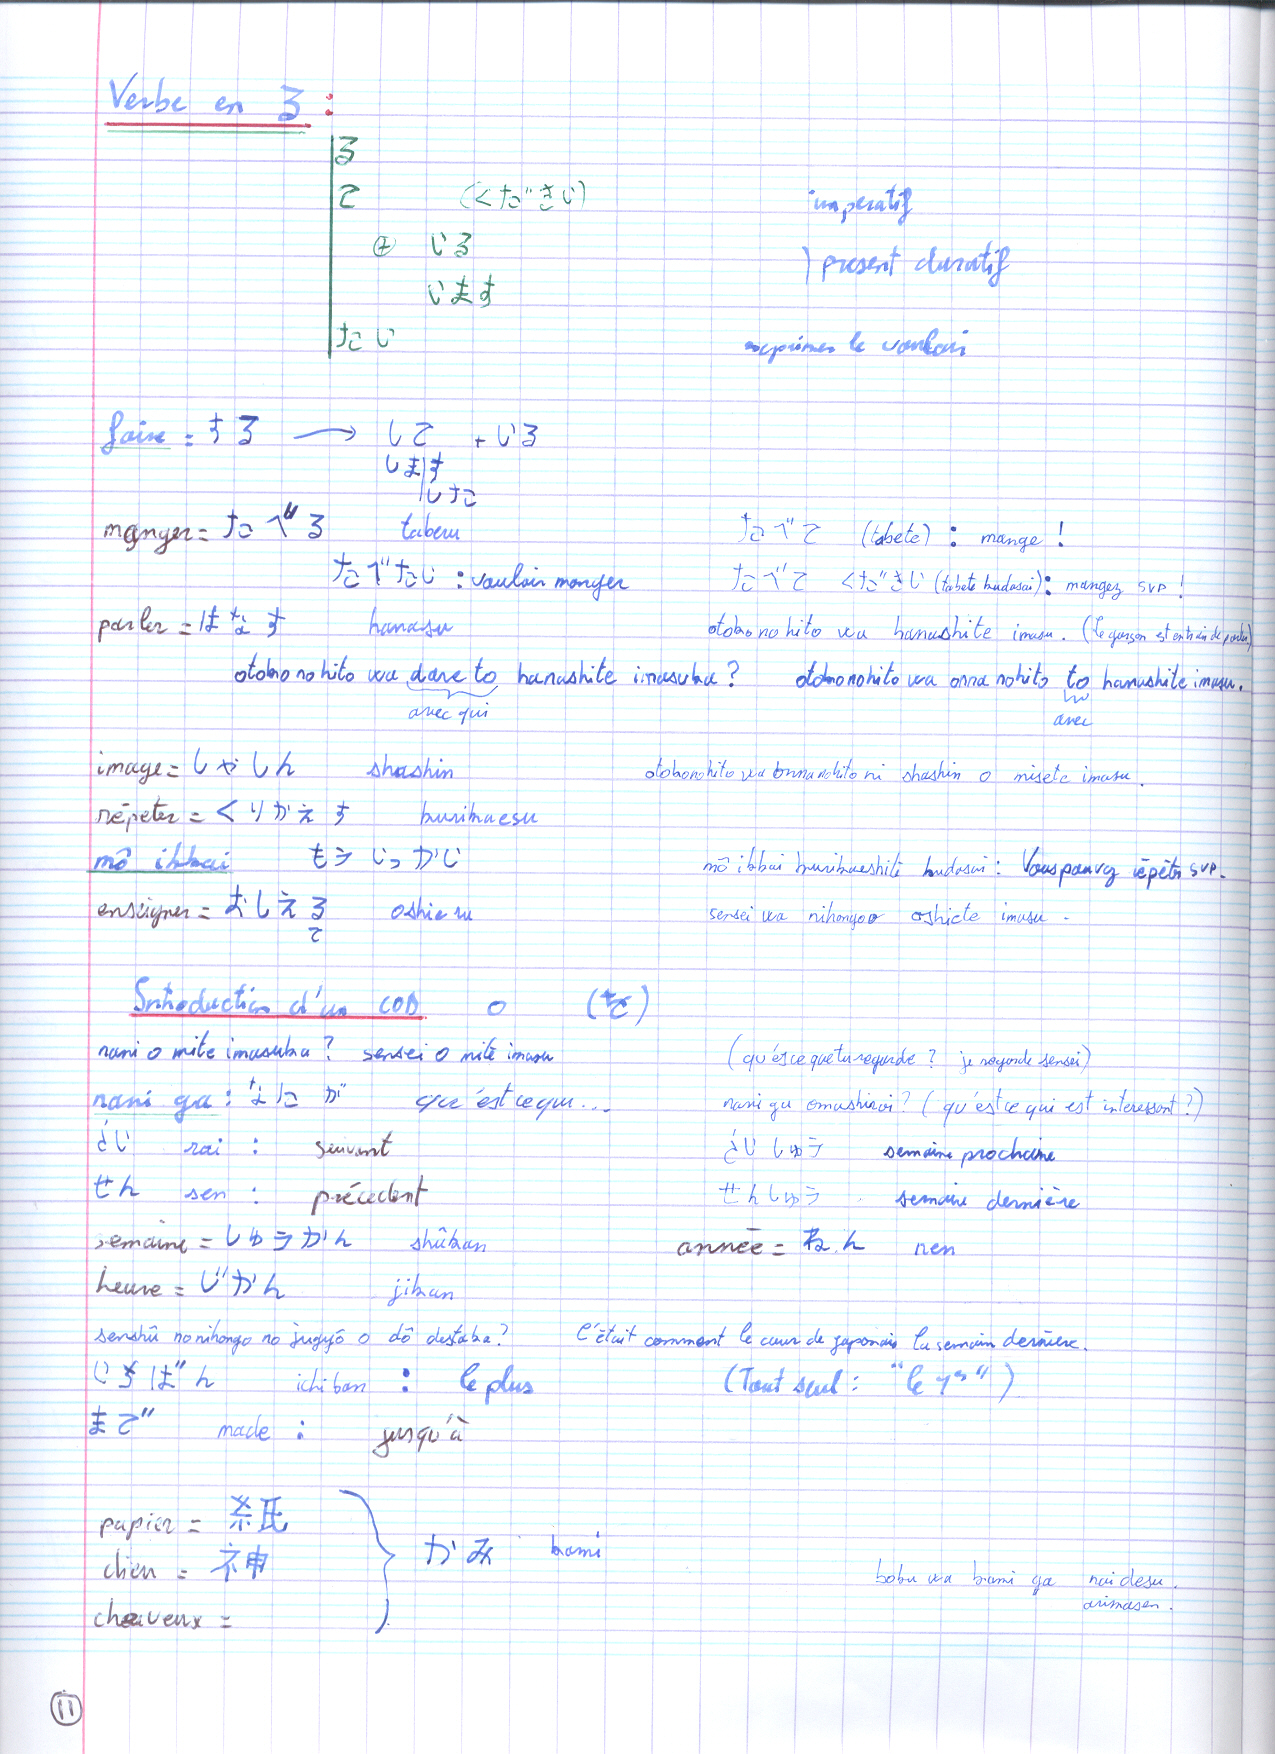 Verbe en る :
る
て (ください) imperatif
+ いる ) present duratif
います
たい exprimer le vouloir
faire = する → して + いる
します
した
manger = たべる taberu たべて (tabete) : mange !
たべたい : vouloir manger たべて ください (tabete kudasai) : mangez SVP !
parler = はなす hanasu otokonohito wa hanashite imasu. (le garçon est entrain de parler)
otokonohito wa dare to hanashite imasuka ? otokonohito wa onna nohito to hanashite imasu.
avec qui avec
image = しゃしん shashin otokonohito wa onnanohito ni shashin o misete imasu.
répéter = くりかえす kurikaesu
mô ikkai もう いっかい mô ikkai kurikaeshite kudasai : Vous pouvez répéter SVP.
enseigner = おしえる oshieru sensei wa nihongo o oshiete imasu.
て
Introduction d'un COD o (を)
nani o mite imasuka ? sensei o mite imasu (qu'est ce que tu regarde ? je regarde sensei)
nani ga : なに が qu'est ce qui... nani ga omoshiroi ? (qu'est ce qui est interessant ?)
らい rai : suivant らい しゅう semaine prochaine
せん sen : précedent せんしゅう semaine dernière
semaine = しゅうかん shûkan année = ねん nen
heure = じかん jikan
senshû no nihongo no jugyô o dô destaka ? C'était comment le cour de japonais la semain dernière.
いちばん ichiban : le plus (Tout seul : "le 1er")
まで made : jusqu'à
papier = 紙
dieu = 神 かみ kami
cheveux =
boku wa kami ga nai desu.
arimasen.
11